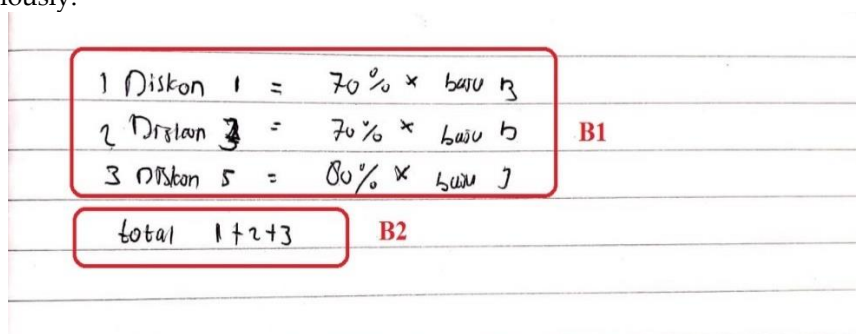 iously.
1 Diskon 1 = 70% × baju B
2 Diskon 3 = 70% × baju
B1
3 Diskon 5 = 80% × baju J
total 1+2+3
B2